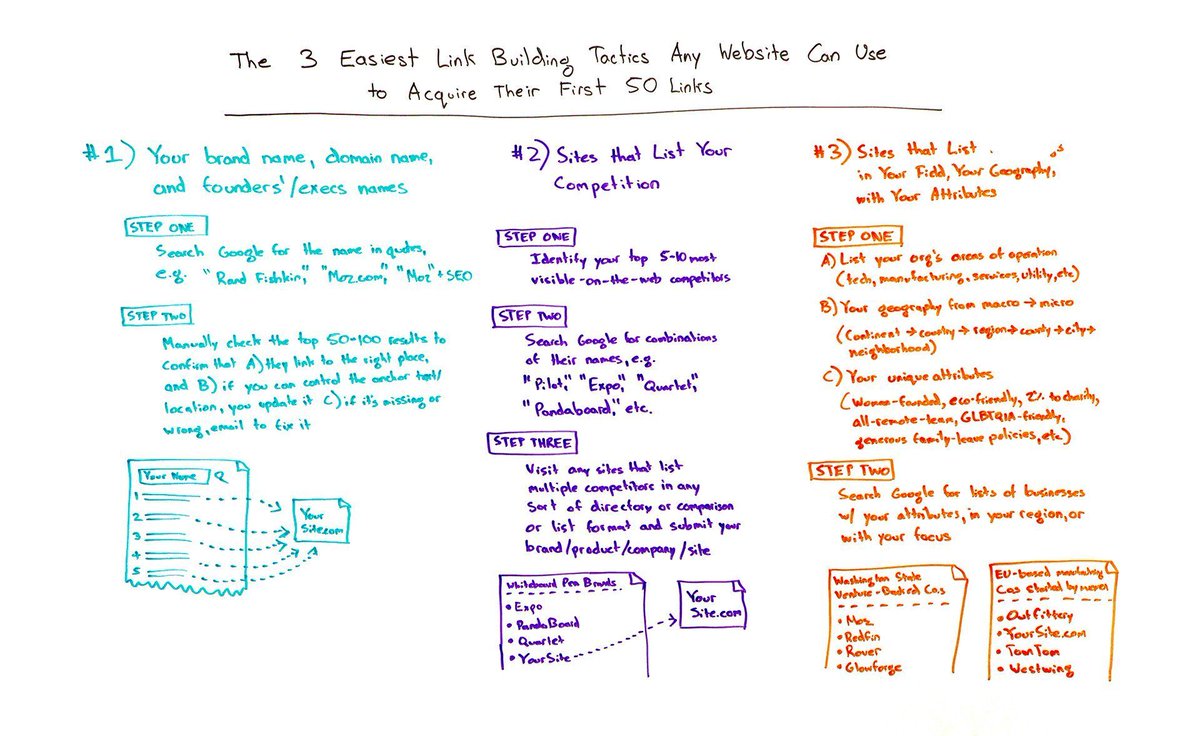 The 3 Easiest Link Building Tactics Any Website Can Use
to Acquire Their First 50 Links
#1) Your brand name, domain name,
and founders'/execs names
STEP ONE
Search Google for the name in quotes,
e.g. "Rand Fishkin," "Moz.com," "Moz" + SEO
STEP TWO
Manually check the top 50-100 results to
confirm that A) they link to the right place,
and B) if you can control the anchor text/
location, you update it C) if it's missing or
wrong, email to fix it
Your Name
1
2
3
4
5
Your
Site.com
#2) Sites that List Your
Competition
STEP ONE
Identify your top 5-10 most
visible-on-the-web competitors
STEP TWO
Search Google for combinations
of their names, e.g.
"Pilot," "Expo," "Quartet,"
"Pandaboard," etc.
STEP THREE
Visit any sites that list
multiple competitors in any
sort of directory or comparison
or list format and submit your
brand/product/company/site
Whiteboard Pen Brands
• Expo
• PandaBoard
• Quartet
• YourSite
Your
Site.com
#3) Sites that List Co.s
in Your Field, Your Geography,
with Your Attributes
STEP ONE
A) List your org's areas of operation
(tech, manufacturing, services, utility, etc)
B) Your geography from macro → micro
(Continent → country → region → county → city →
neighborhood)
C) Your unique attributes
(Women-founded, eco-friendly, 2% to charity,
all-remote-team, GLBTQIA-friendly,
generous family-leave policies, etc)
STEP TWO
Search Google for lists of businesses
w/ your attributes, in your region, or
with your focus
Washington State
Venture-Backed Co.s
• Moz
• Redfin
• Rover
• Glowforge
EU-based manufacturing
Cos started by
• Outfittery
• YourSite.com
• TomTom
• Westwing